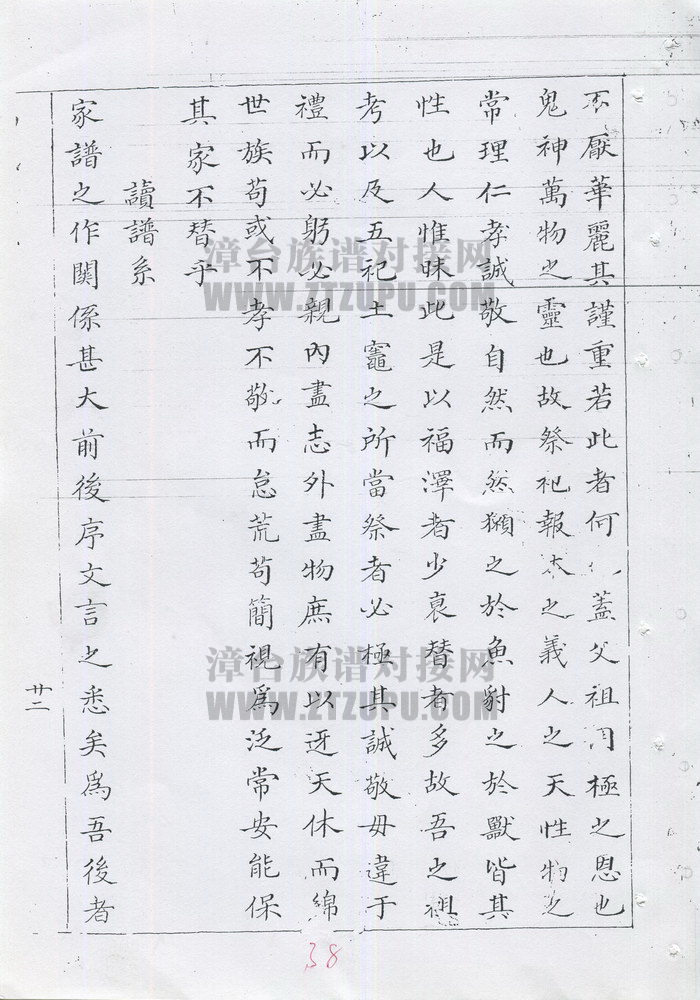 不厭華麗其謹重若此者何 蓋父祖罔極之恩也
鬼神萬物之靈也故祭祀報本之義人之天性物之
常理仁孝誠敬自然而然獺之於魚豺之於獸皆其
性也人惟昧此是以福澤者少衰替者多故吾之祖
考以及五祀土竈之所當祭者必極其誠敬毋違于
禮而必躬必親內盡志外盡物庶有以迓天休而綿
世族苟或不孝不敬而怠荒苟簡視爲泛常安能保
其家不替乎
讀譜系
家譜之作関係甚大前後序文言之悉矣爲吾後者
廿二
38
漳台族谱对接网
WWW.ZTZUPU.COM
漳台族谱对接网
WWW.ZTZUPU.COM